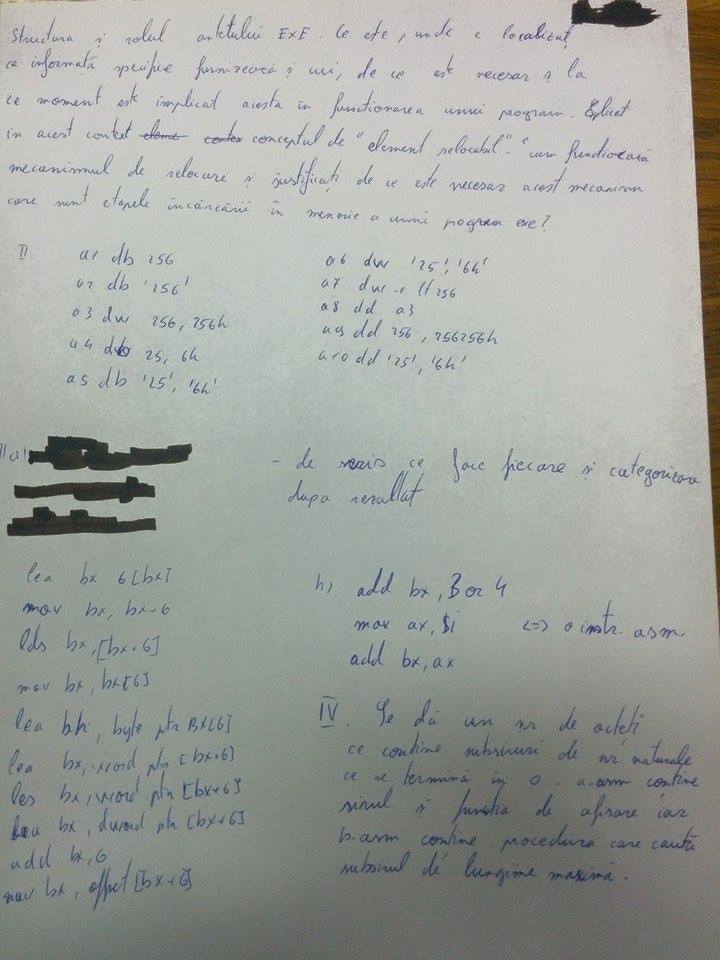 Structura și rolul antetului EXE. Ce este, unde e localizat,
ce informații specifice furnizează și cui, de ce este necesar și la
ce moment este implicat acesta în funcționarea unui program. Explicat
în acest context conceptul de "element relocabil". cum funcționează
mecanismul de relocare și justificați de ce este necesar acest mecanism
care sunt etapele încărcării în memorie a unui program exe?
II
a1 db 256
a2 db '256'
a3 dw 256, 256h
a4 db 25, 6h
a5 db '25', '6h'
a6 dw '25', '6h'
a7 dw 256
a8 dd a3
a9 dd 256, 256256h
a10 dd '25', '6h'
a)
- de scris ce face fiecare și categorisire
dupa rezultat
lea bx 6[bx]
mov bx, bx+6
lds bx, [bx+6]
mov bx, bx[6]
lea bh, byte ptr BX[6]
lea bx, word ptr [bx+6]
les bx, word ptr [bx+6]
lea bx, dword ptr [bx+6]
add bx, 6
mov bx, offset [bx+6]
b) add bx, 3 or 4
mov ax, Si <=> o instr. asm.
add bx, ax
IV. Se dă un sir de octeți
ce contine subsiruri de nr naturale
ce se termină în 0. a.asm contine
sirul și functia de afisare iar
b.asm contine procedura care cauta
subsirul de lungime maximă.